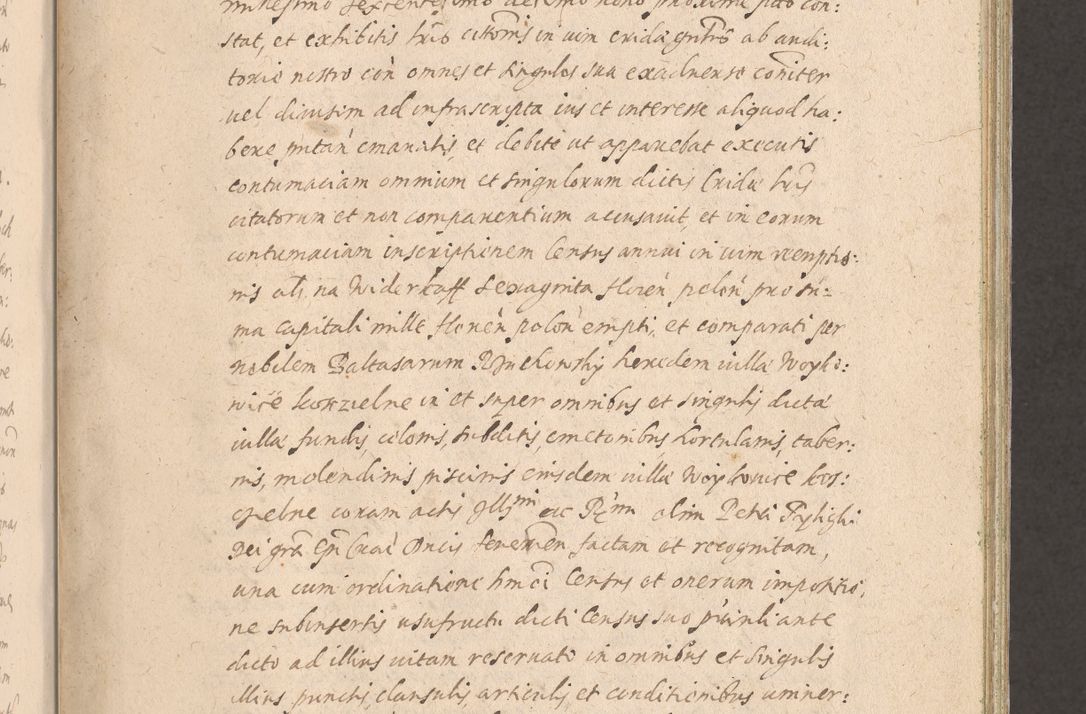 millesimo sexcentesimo decimo nono proxime pito con:
stat, et exhibitis lris citoris in vim cridæ gntris ab audi:
torio nostro con omnes et singulos sua exadnerso coniter
vel divisim ad infrascripta ius et interesse aliquod ha:
bere pntan emanatis, et debite ut apparebat executis
contumaciam omnium et singulorum dictis Cridæ lris
citatorum et non comparentium accusavit, et in eorum
contumaciam inscriptionem Census annui in vim reemptio:
nis als na Widerkaff sexaginta floren polon pro su=
ma capitali mille floren polon empti, et comparati per
nobilem Baltasarum Rynchowsky heredem villæ Woyko:
wice koszielne in et super omnibus et singulis dictæ
villæ fundis, colonis, subditis, cmetonibus, hortulanis, taber:
nis, molendinis piscinis eiusdem villæ Woykowice kos:
czielne coram actis Illmi ac Rmi olim Petri Tylicki
Dei gra Epi Crac Ducis Severien factam et recognitam,
una cum ordinatione hmoi Census et onerum impositio,
ne subinsertis usufructu dicti Census suo principali ante
dicto ad illius vitam reservato in omnibus et singulis
illius punctis, clausulis, articulis, et conditionibus aminer: